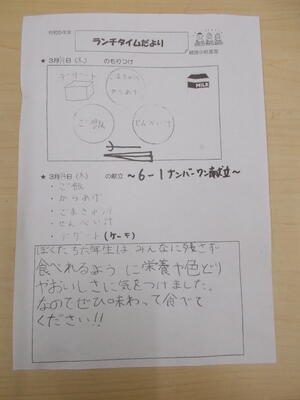 ランチタイムだより
★3月 日( )のもりつけ
デザート
ごまきゅうり
からあげ
MILK
ご飯
せんべい汁
★3月 日(木)の献立 ～6-1ナンバーワン献立～
・ご飯
・からあげ
・ごまきゅうり
・せんべい汁
・デザート(ケーキ)
ぼくたち六年生は みんなに残さず
食べれるよう に栄養や色どり
やおいしさに気をつけました。
なのでぜひ味わって食べて
ください!!